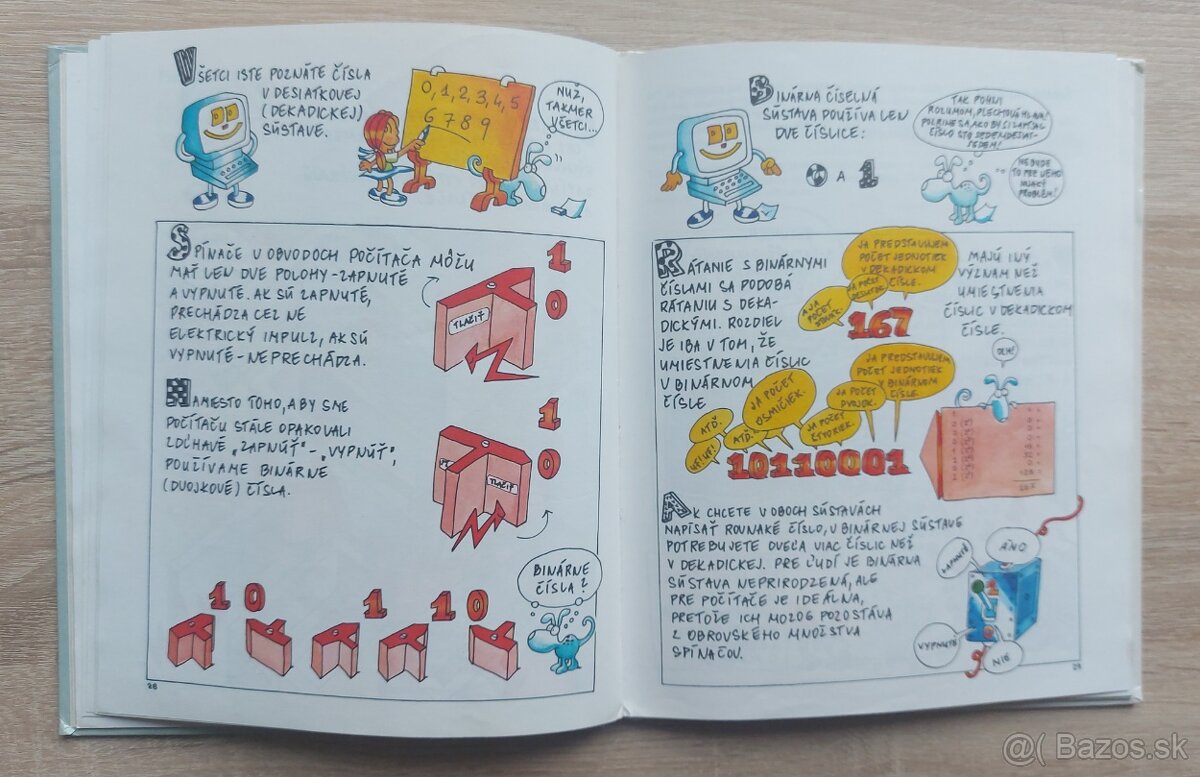 VŠETCI ISTE POZNÁTE ČÍSLA
V DESIATKOVEJ
(DEKADICKEJ)
SÚSTAVE.
0,1,2,3,4,5
6 7 8 9
NUŽ,
TAKMER
VŠETCI...
SPÍNAČE V OBVODOCH POČÍTAČA MÔŽU
MAŤ LEN DVE POLOHY-ZAPNUTÉ
A VYPNUTÉ. AK SÚ ZAPNUTÉ,
PRECHÁDZA CEZ NE
ELEKTRICKÝ IMPULZ, AK SÚ
VYPNUTÉ-NEPRECHÁDZA.
1
0
TLAČIŤ
NAMIESTO TOHO, ABY SME
POČÍTAČU STÁLE OPAKOVALI
ZDĹHAVÉ „ZAPNÚŤ"-„VYPNÚŤ",
POUŽÍVAME BINÁRNE
(DVOJKOVÉ) ČÍSLA.
1
0
TLAČIŤ
BINÁRNE
ČÍSLA?
1 0 1 1 0
28
BINÁRNA ČÍSELNÁ
SÚSTAVA POUŽÍVA LEN
DVE ČÍSLICE:
0 A 1
TAK POHNI
ROZUMOM, PLECHOVÁ HLAVA!
ČÍSLO STO
NEBUDE
TO PRE NEHO
PROBLÉM!
RÁTANIE S BINÁRNYMI
ČÍSLAMI SA PODOBÁ
RÁTANIU S DEKA-
DICKÝMI. ROZDIEL
JE IBA V TOM, ŽE
UMIESTNENIA ČÍSLIC
V BINÁRNOM
ČÍSLE
JA PREDSTAVUJEM
POČET JEDNOTIEK
V DEKADICKOM
ČÍSLE.
JA POČET
DESIATOK.
A JA
POČET
STOVIEK.
167
MAJÚ INÝ
VÝZNAM NEŽ
UMIESTNENIA
ČÍSLIC V DEKADICKOM
ČÍSLE.
JA PREDSTAVUJEM
POČET JEDNOTIEK
V BINÁRNOM
ČÍSLE.
JA POČET
DVOJOK.
JA POČET
ŠTVORIEK.
JA POČET
OSMIČIEK.
ATĎ.
ATĎ.
UF! UF!
10110001
AK CHCETE V OBOCH SÚSTAVÁCH
NAPÍSAŤ ROVNAKÉ ČÍSLO, V BINÁRNEJ SÚSTAVE
POTREBUJETE OVEĽA VIAC ČÍSLIC NEŽ
V DEKADICKEJ. PRE ĽUDÍ JE BINÁRNA
SÚSTAVA NEPRIRODZENÁ, ALE
PRE POČÍTAČE JE IDEÁLNA,
PRETOŽE ICH MOZOG POZOSTÁVA
Z OBROVSKÉHO MNOŽSTVA
SPÍNAČOV.
ZAPNUTÉ
ÁNO
VYPNUTÉ
NIE
29
@( Bazos.sk